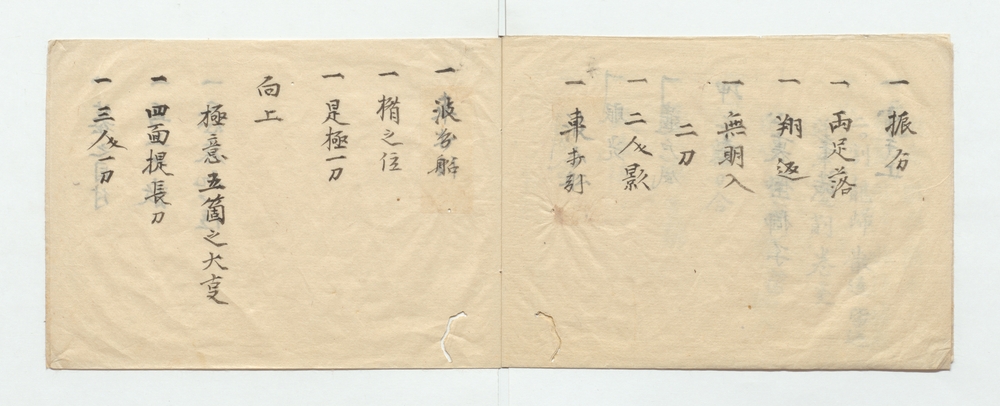 一 振分
一 両足落
一 翔返
一 無明入
二刀
一 二人影
一
一 波分船
一 楷之位
一 是極一刀
向上
極意五箇之大事
一 四面提長刀
一 三人一刀